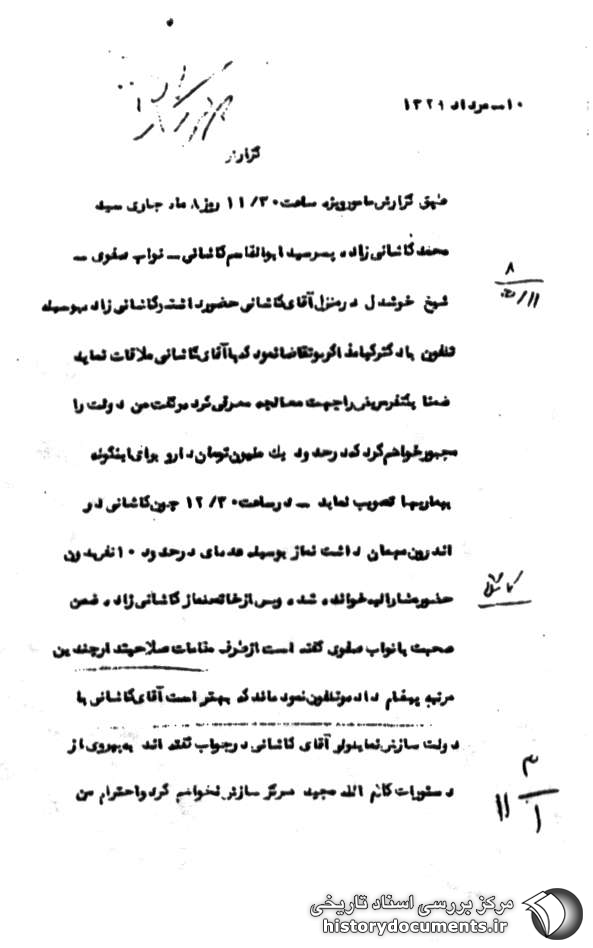 ۱۰ـ مرداد ۱۳۲۹
گزارش
طبق گزارش مامور ویژه ساعت ۱۱/۳۰ روز ۸ ماه جاری سید
محمد کاشانی زاده پسر سید ابوالقاسم کاشانی ــ نواب صفوی ــ
۸
شیخ خوشدل در منزل آقای کاشانی حضور داشته و کاشانی زاده بوسیله
تلفون با دکتر مذاکره و تقاضا نمود که با آقای کاشانی ملاقات نماید
ضمنا یکنفر مریض را جهت معالجه معرفی کرد و گفت من دولت را
مجبور خواهم کرد که در حدود یک ملیون تومان دارو برای اینگونه
بیماریها تصویب نماید ــ در ساعت ۱۲/۳۰ چون کاشانی در
اندرون مهمان داشت نماز بوسیله عده‌ای در حدود ۱۰ نفر بدون
حضور مشارالیه خوانده شد و پس از خاتمه نماز کاشانی زاده ضمن
صحبت با نواب صفوی گفته است از طرف مقامات صلاحیتدار چندین
مرتبه پیغام داده و تلفون نموده‌اند که بهتر است آقای کاشانی با
دولت سازش نماید ولی آقای کاشانی در جواب گفته اند به پیروی از
دستورات کلام الله مجید هرگز سازش نخواهم کرد و احترام من
۱۱ ۳/۱
مرکز بررسی اسناد تاریخی
historydocuments.ir